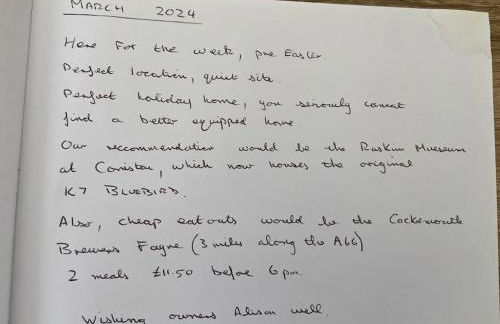 MARCH 2024
Here for the week, pre Easter.
Perfect location, quiet site.
Perfect holiday home, you seriously cannot
find a better equipped home.
Our reccommendation would be the Ruskin Museum
at Coniston, which now houses the original
K7 BLUEBIRD.
Also, cheap eat outs would be the Cockermouth
Brewers Fayre (3 miles along the A66)
2 meals £11.50 before 6pm.
Wishing owners Alison well.